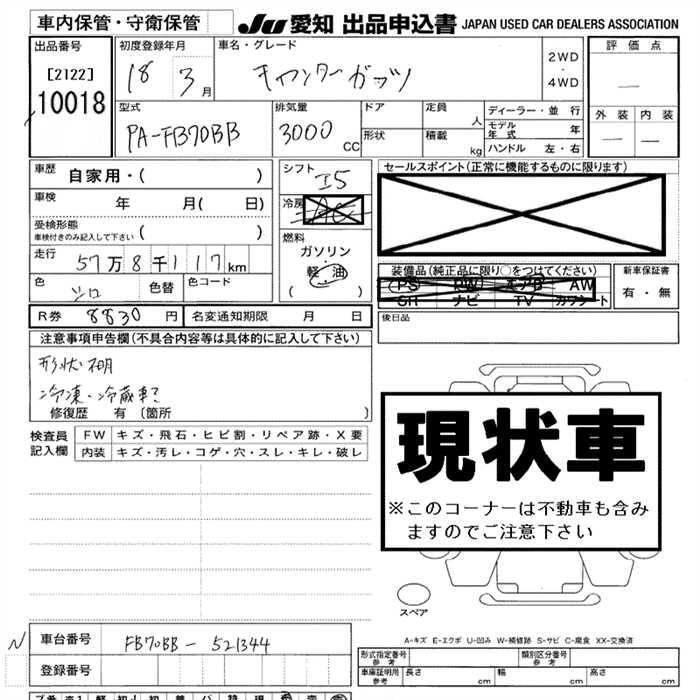 車内保管・守衛保管
JU 愛知 出品申込書 JAPAN USED CAR DEALERS ASSOCIATION
出品番号
[2122]
10018
初度登録年月
18 3月
車名・グレード
キャンターガッツ
2WD
・
4WD
評価点
—
外装 内装
— —
型式
PA-FB70BB
排気量
3000 CC
ドア
形状
定員 人
積載 kg
ディーラー・並行
モデル年式 年
ハンドル 左・右
車歴 自家用・( )
車検 年 月( 日)
受検形態
車検付きのみ記入して下さい ( )
走行 57万8千117km
色 シロ 色替 色コード
シフト I5
冷房 AC
燃料
ガソリン・
軽油
( )
セールスポイント(正常に機能するものに限ります)
装備品(純正品に限り○をつけてください)
PS PW エアB AW
SR ナビ TV カワシート
新車保証書
有・無
R券 8830円 名変通知期限 月 日
後日品
注意事項申告欄(不具合内容等は具体的に記入して下さい)
形状不明
冷凍・冷蔵車?
修復歴 有 〔箇所 〕
検査員記入欄
FW キズ・飛石・ヒビ割・リペア跡・X要
内装 キズ・汚レ・コゲ・穴・スレ・キレ・破レ
現状車
※このコーナーは不動車も含み
ますのでご注意下さい
スペア
A-キズ E-エクボ U-凹み W-補修跡 S-サビ C-腐食 XX-交換済
N
車台番号 FB70BB-521344
登録番号
形式指定番号 参考
類別区分番号 参考
車庫証明用 参考 長さ cm 幅 cm 高さ cm